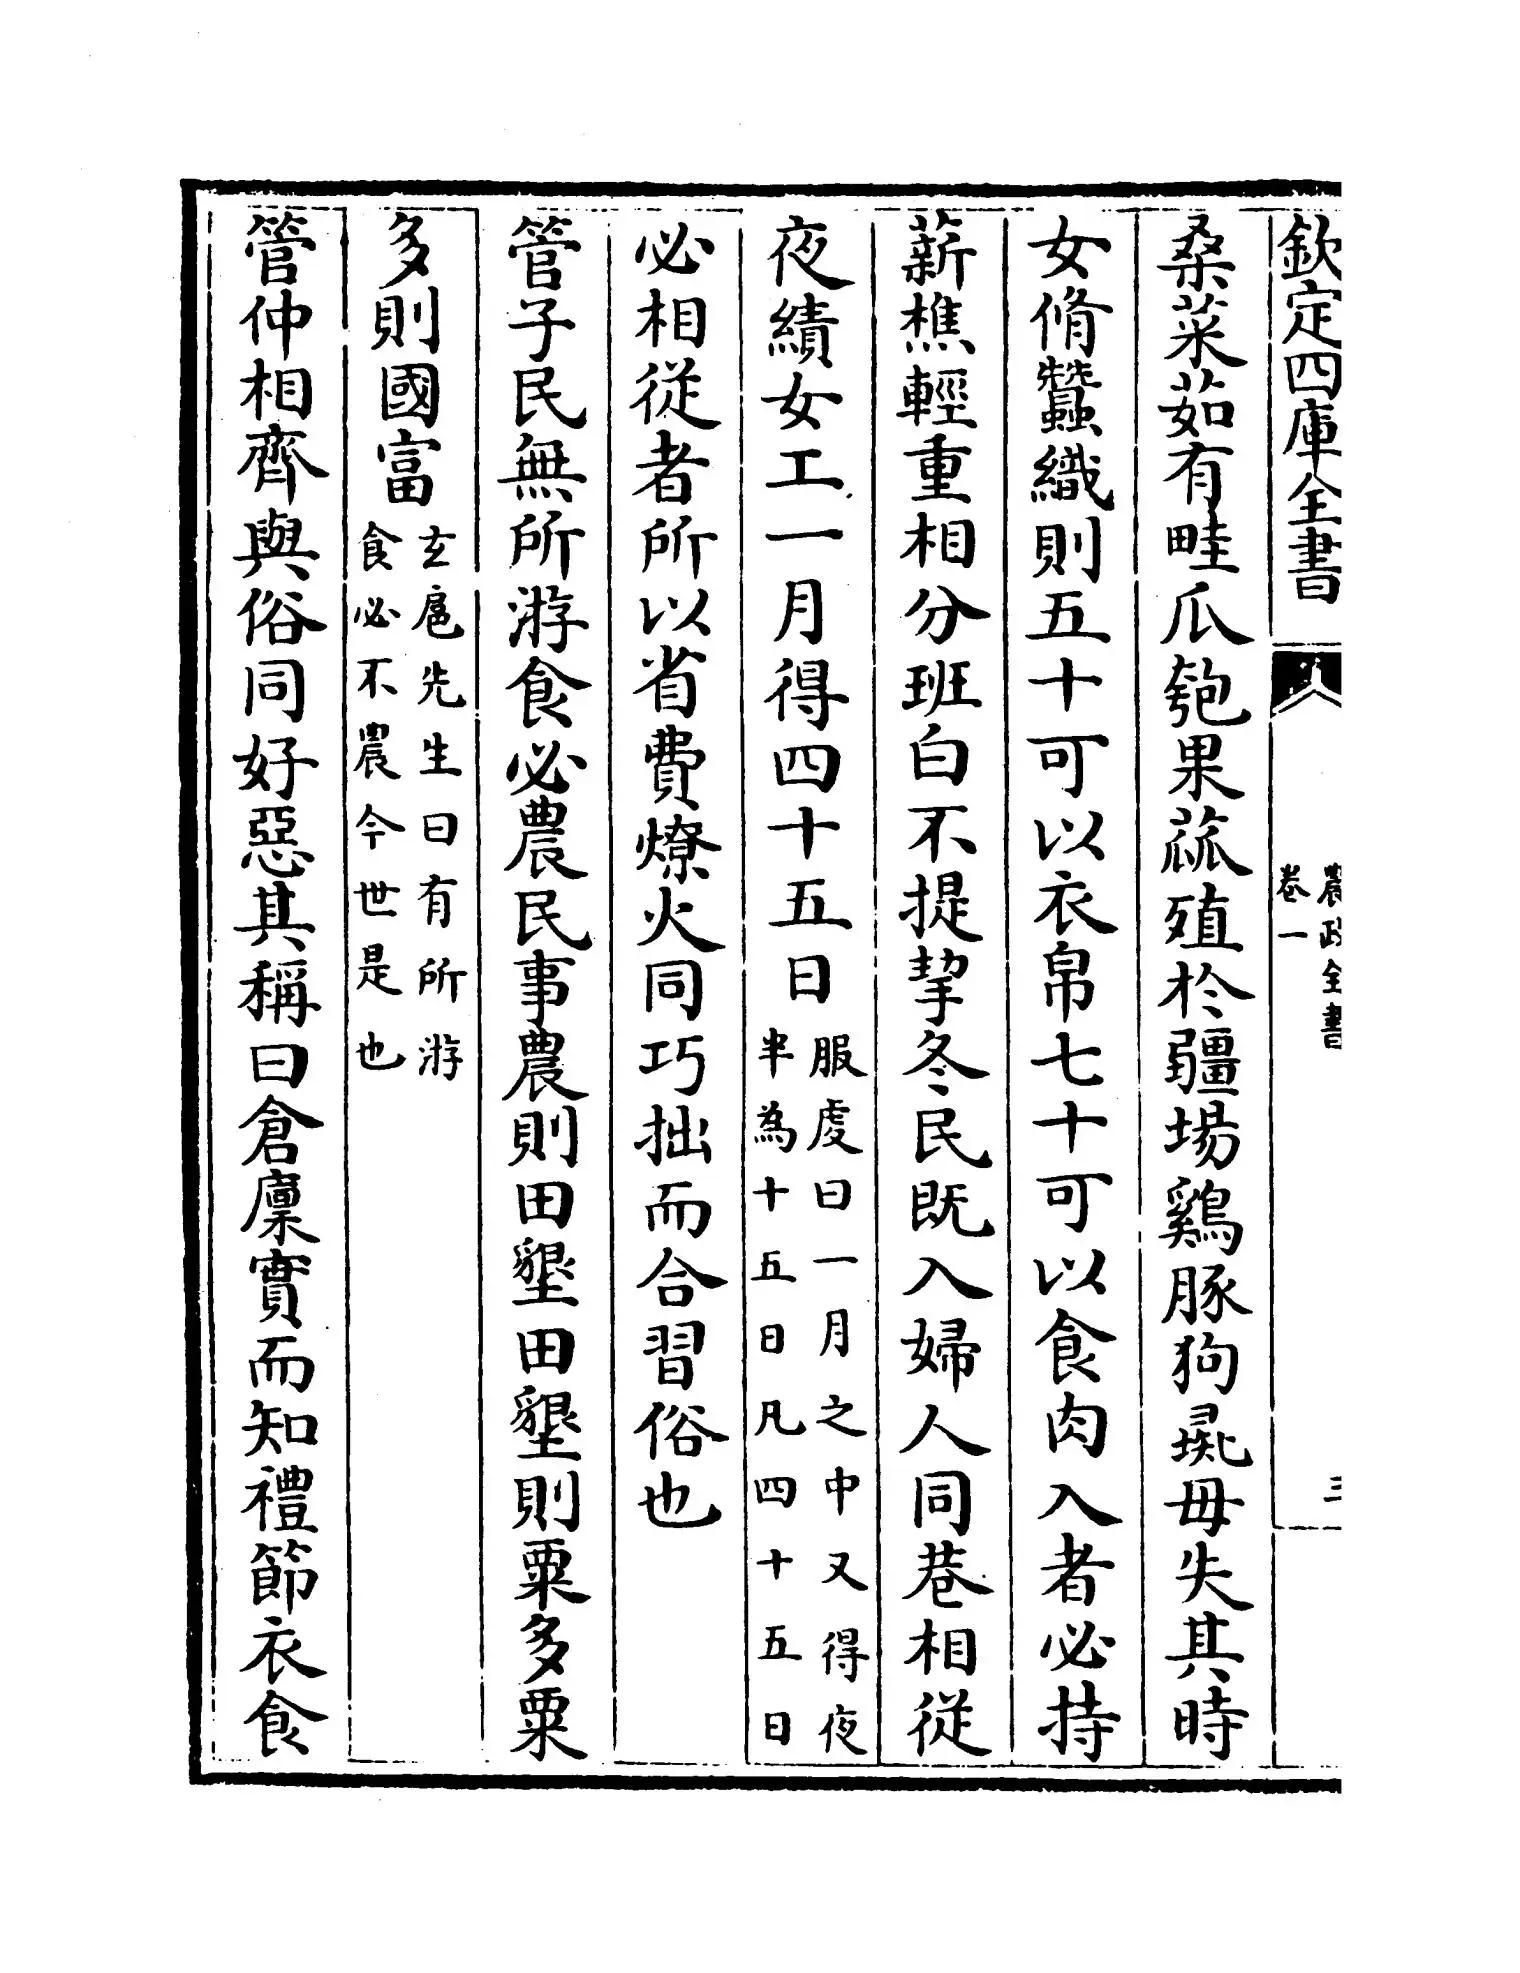 欽定四庫全書
農政全書
卷一
三
桑菜茹有畦瓜匏果蓏殖於疆場鷄豚狗彘毋失其時
女脩蠶織則五十可以衣帛七十可以食肉入者必持
薪樵輕重相分班白不提挈冬民既入婦人同巷相從
夜績女工一月得四十五日服虔曰一月之中又得夜
半為十五日凡四十五日
必相從者所以省費燎火同巧拙而合習俗也
管子民無所游食必農民事農則田墾田墾則粟多粟
多則國富玄扈先生曰有所游
食必不農今世是也
管仲相齊與俗同好惡其稱曰倉廩實而知禮節衣食